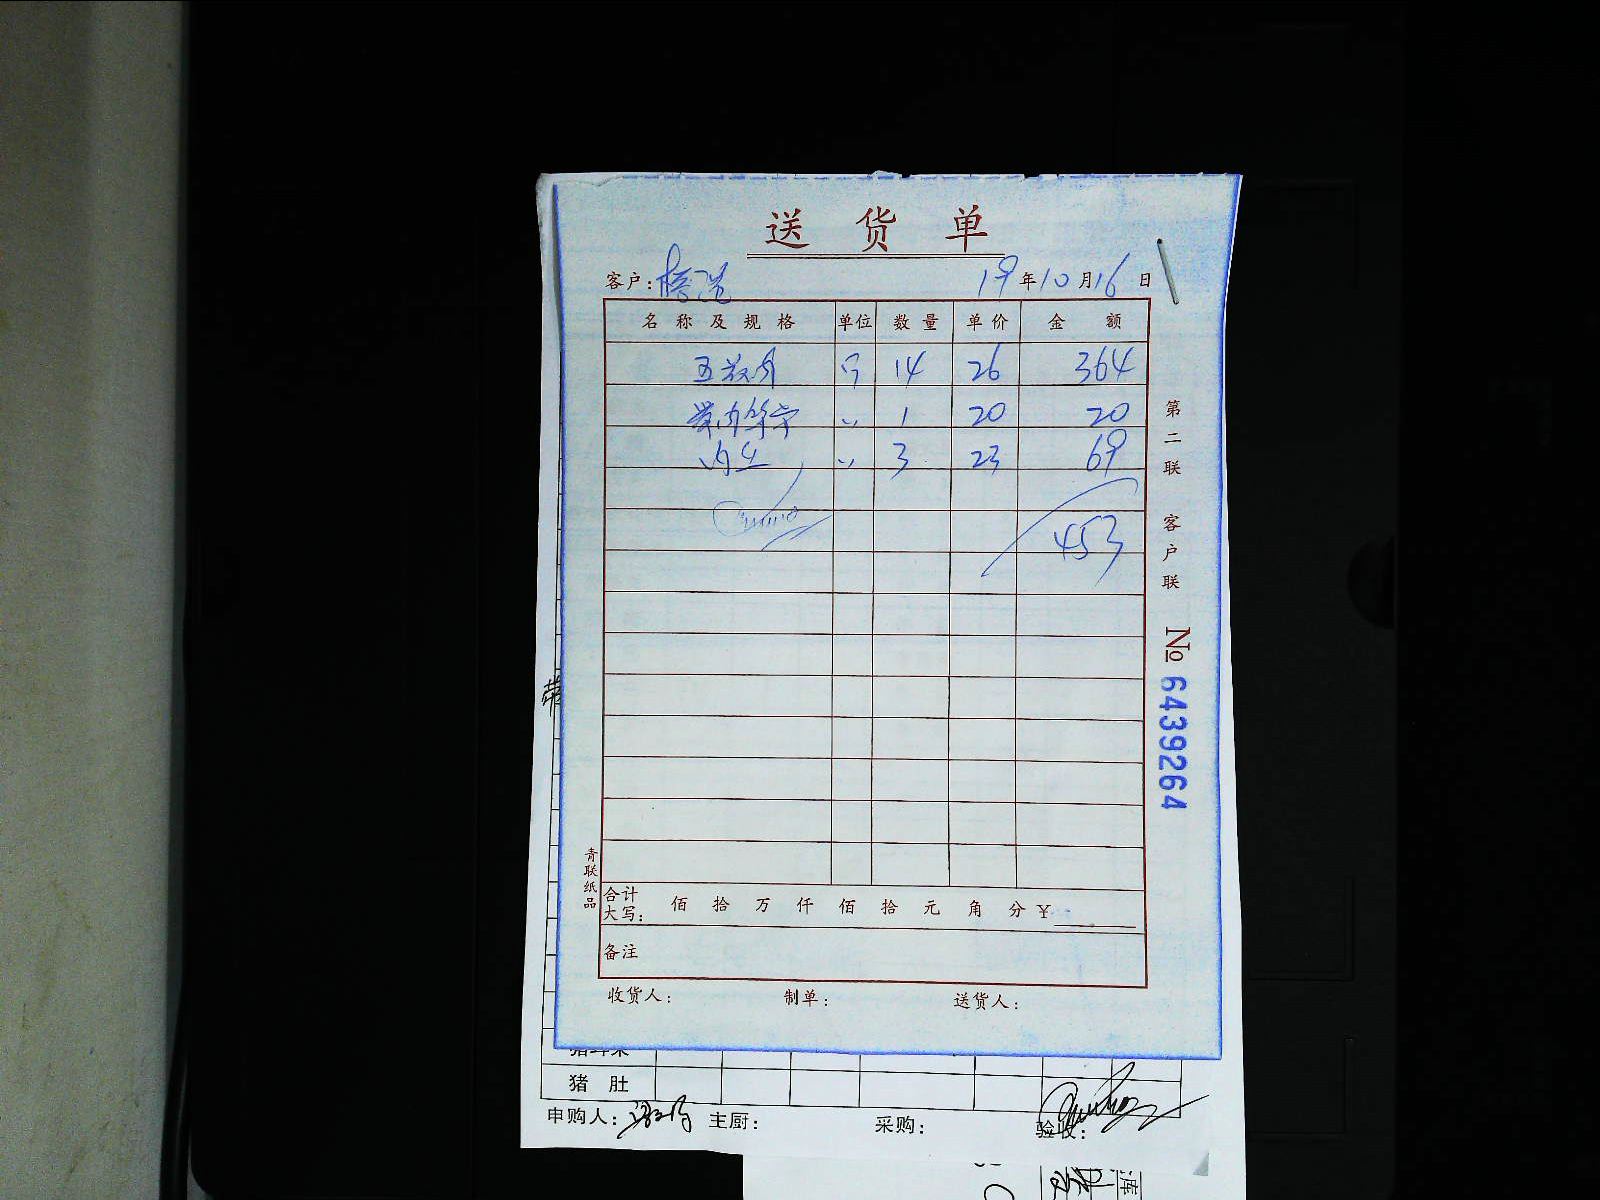 送货单
客户: 19年10月16日
名称及规格 单位 数量 单价 金额
五花肉 斤 14 26 364
〃 1 20 20
〃 3 23 69
453
第二联 客户联
№ 6439264
青联纸品
合计大写: 佰 拾 万 仟 佰 拾 元 角 分 ¥
备注
收货人: 制单: 送货人:
猪肚
申购人: 主厨: 采购: 验收: